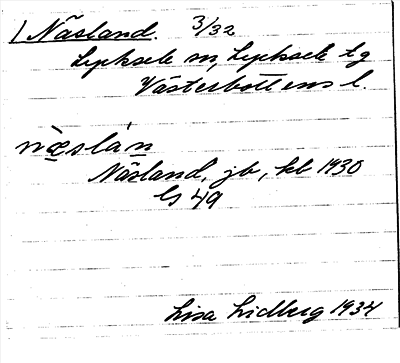 1 Näsland. 3/32
Lycksele sn, Lycksele tg
Västerbottens l.
næslán
Näsland, jb, kb 1930
GS 49
Lisa Lidberg 1934